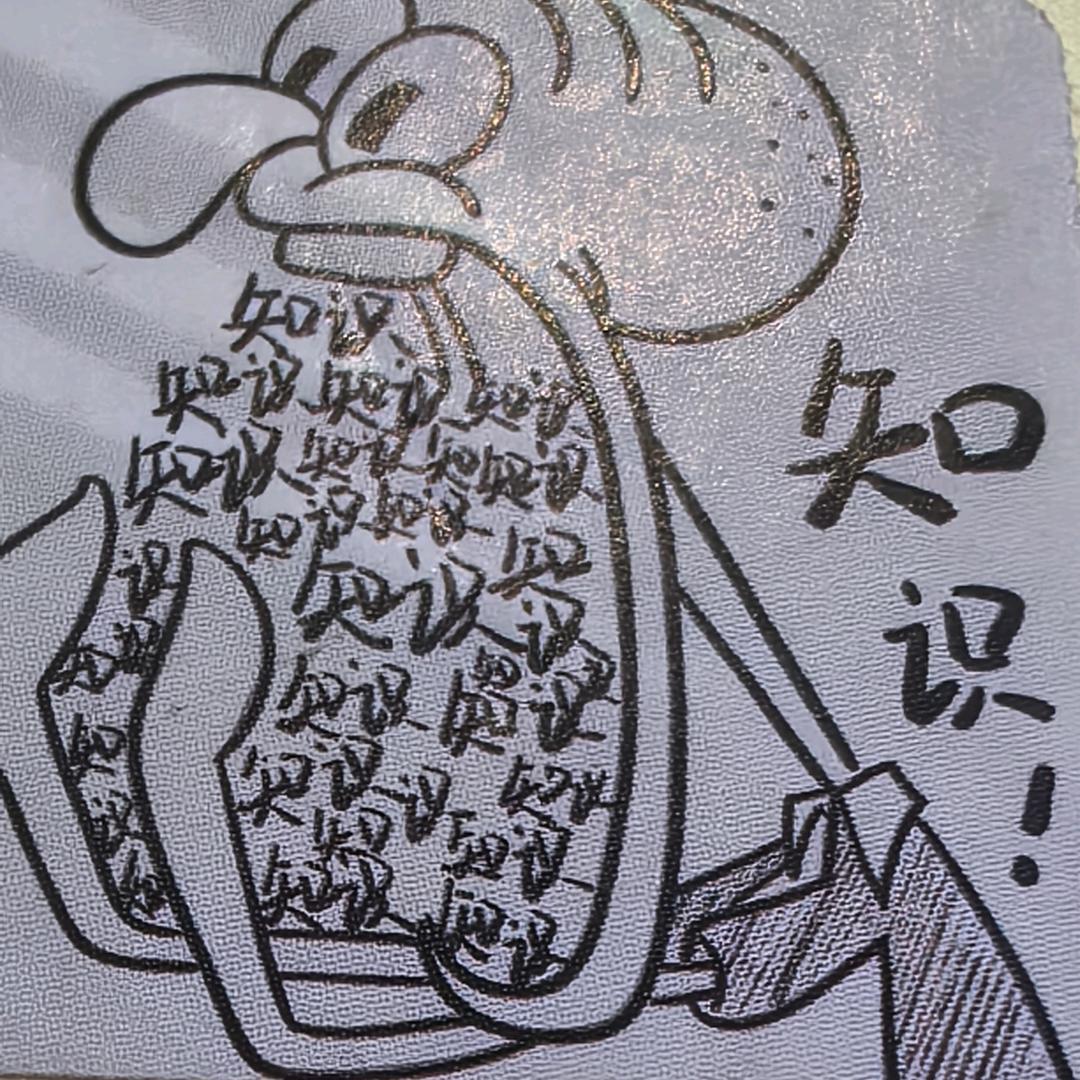 知识
知识 知识 知识
知识 知识 知 知识
知识 知识
识 知识 知
识
知识
知识 知识
知
知识 识 知识
识 知 知识
知识
知识
知
识
！